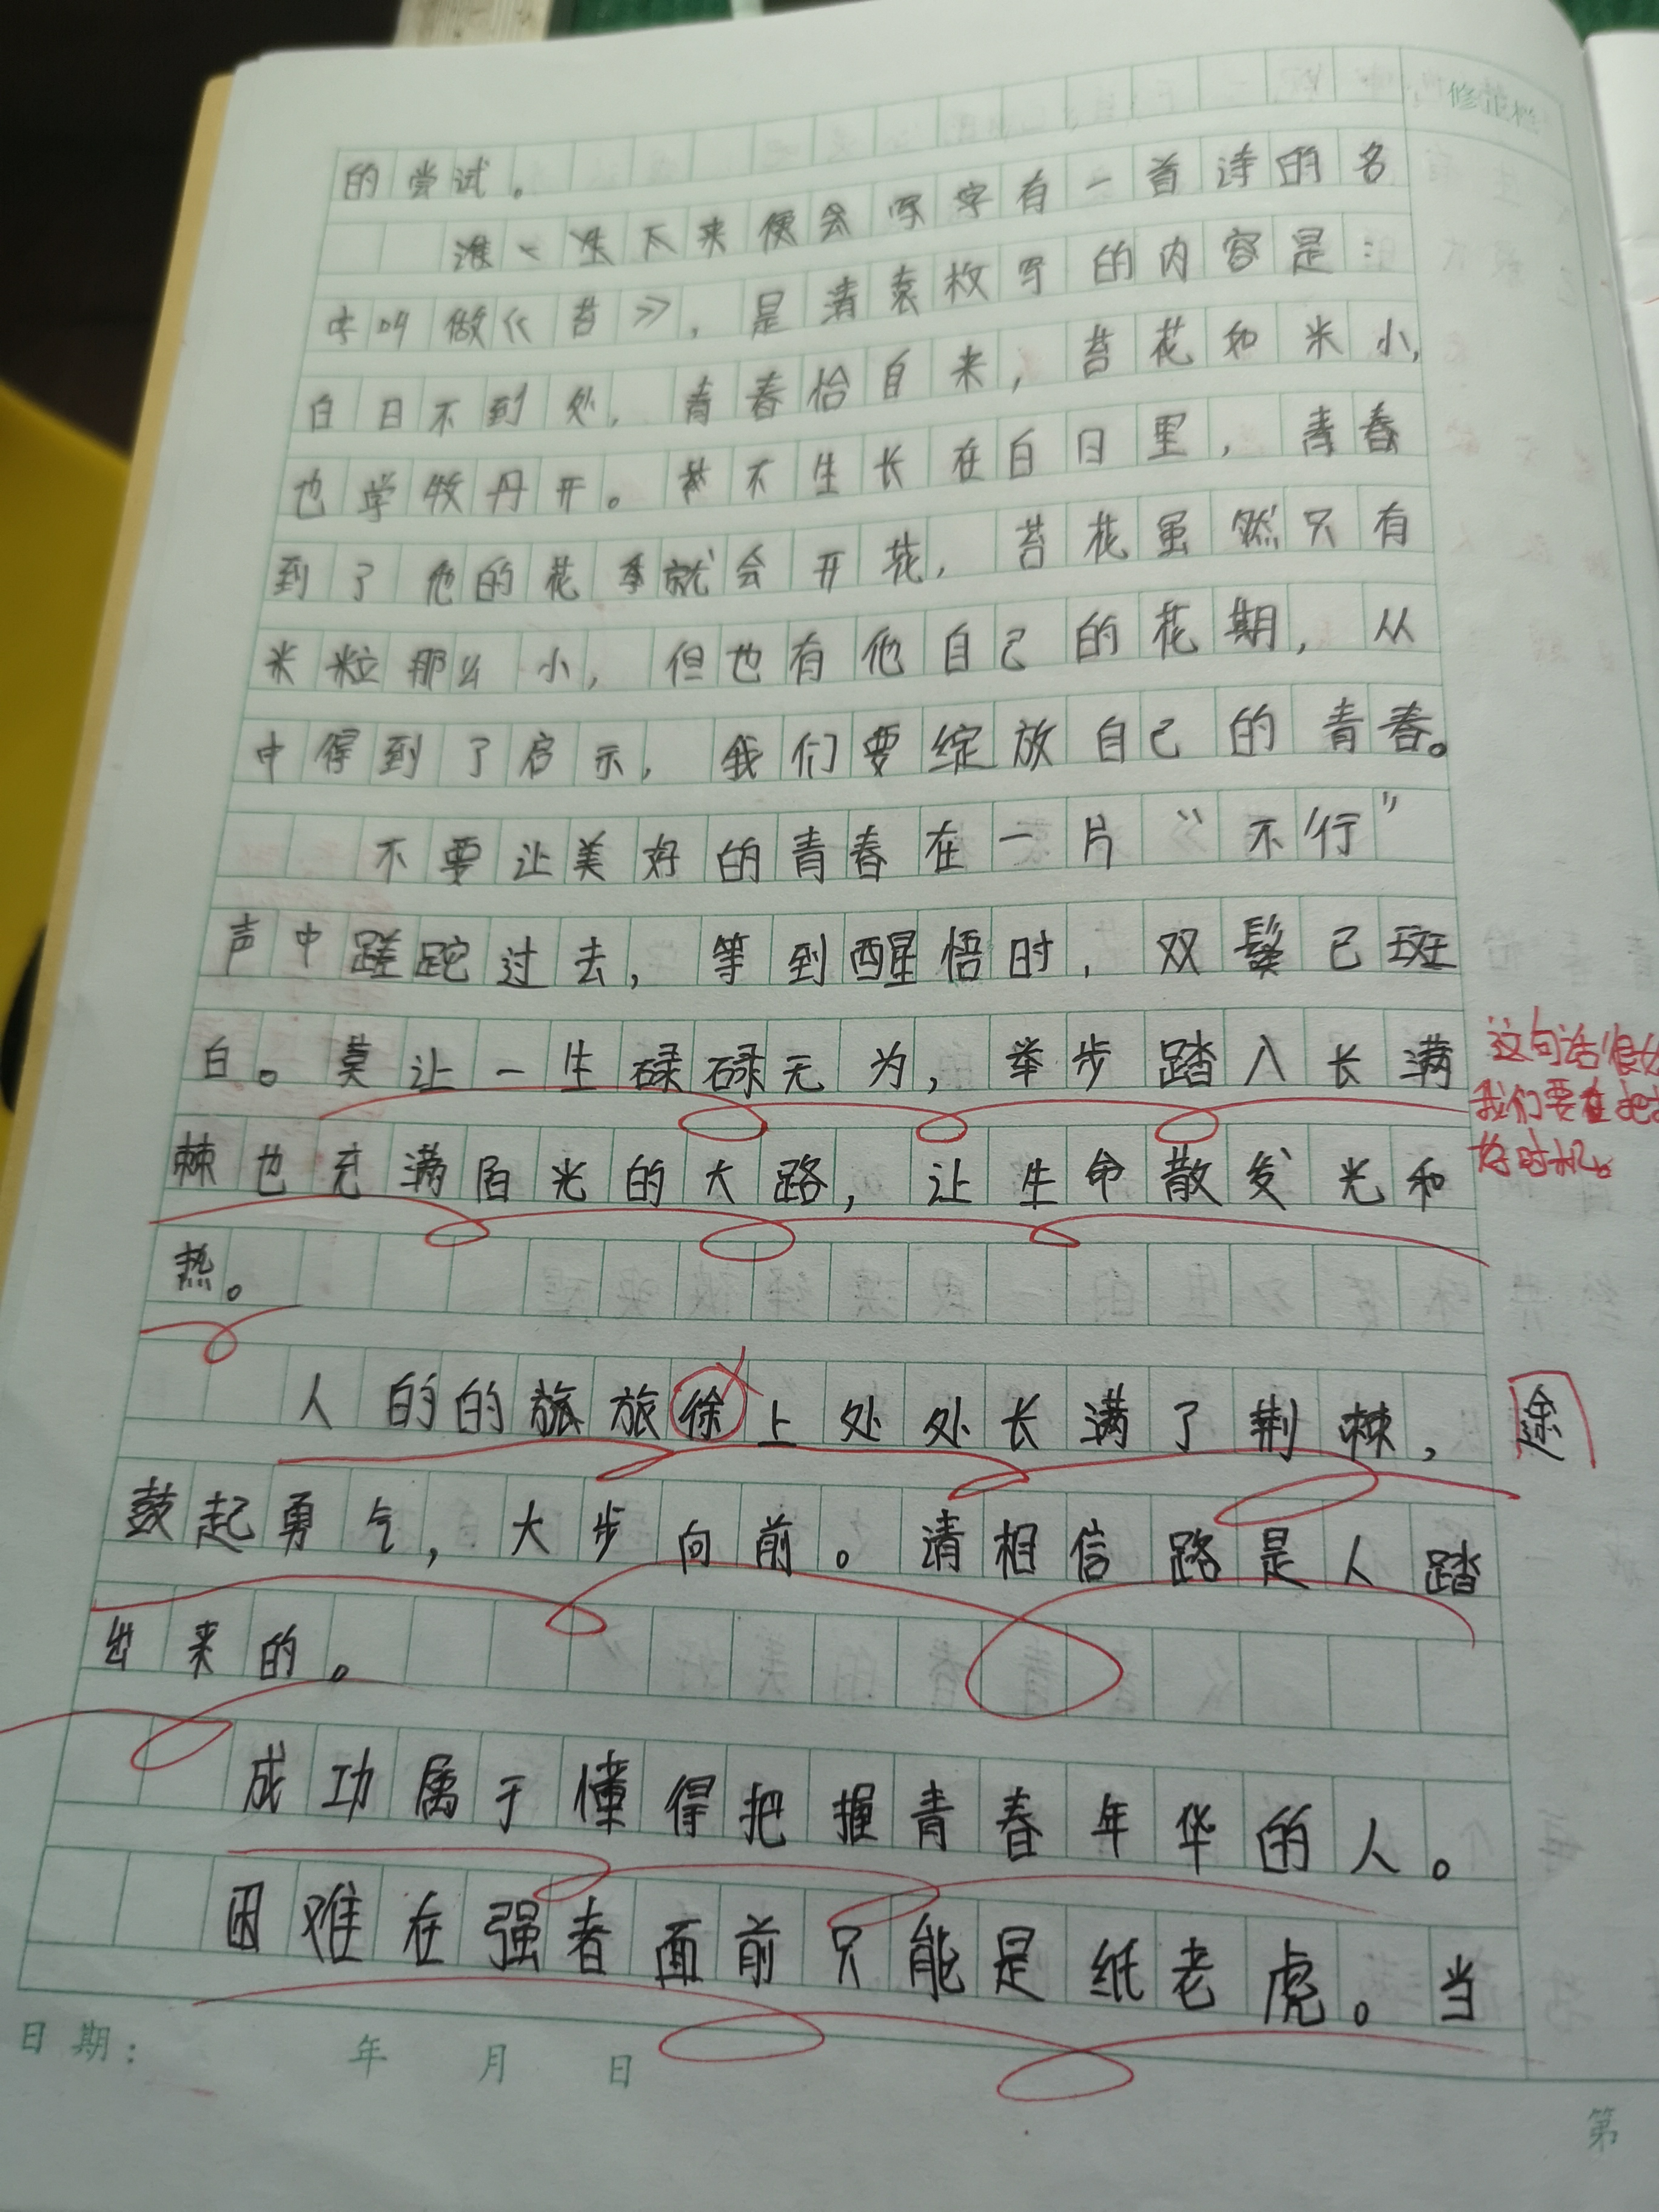 修正栏
的尝试。
谁一生下来便会写字有一首诗的名
字叫做《苔》，是清袁枚写的内容是：
白日不到处，青春恰自来，苔花如米小，
也学牧丹开。我不生长在白日里，青春
到了他的花季就会开花，苔花虽然只有
米粒那么小，但也有他自己的花期，从
中得到了启示，我们要绽放自己的青春。
不要让美好的青春在一片“不行”
声中蹉跎过去，等到醒悟时，双鬓已斑
白。莫让一生碌碌无为，举步踏入长满
这句话很好
我们要在把握
好时机。
棘也充满阳光的大路，让生命散发光和
热。
人的的旅旅徐上处处长满了荆棘，
途
鼓起勇气，大步向前。请相信路是人踏
出来的。
成功属于懂得把握青春年华的人。
困难在强者面前只能是纸老虎。当
日期： 年 月 日
第